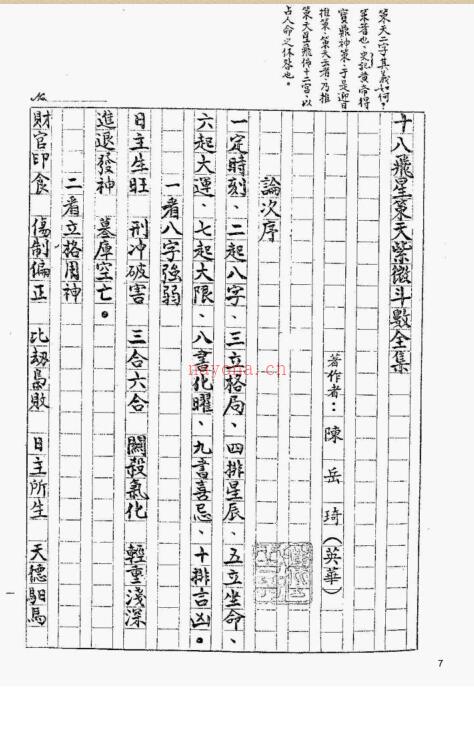 策天二字其義如何。
策者也。史記黃帝得
寶鼎神策。于是迎日
推策。策天云者。乃推
策天星飛佈十二宮。以
占人命之休咎也。
No
十八飛星策天紫微斗數全集
著作者：陳岳琦(英華)
論次序
一定時刻、二起八字、三立格局、四排星辰、五立坐命、
六起大運、七起大限、八書化曜、九書喜忌、十排吉凶。
一看八字強弱
日主生旺　刑冲破害　三合六合　關殺氣化　輕重淺深
進退發神　墓庫空亡。
二看立格用神
財官印食　傷制偏正　比劫梟敗　日主所生　天德馹馬
nayona.cn
7